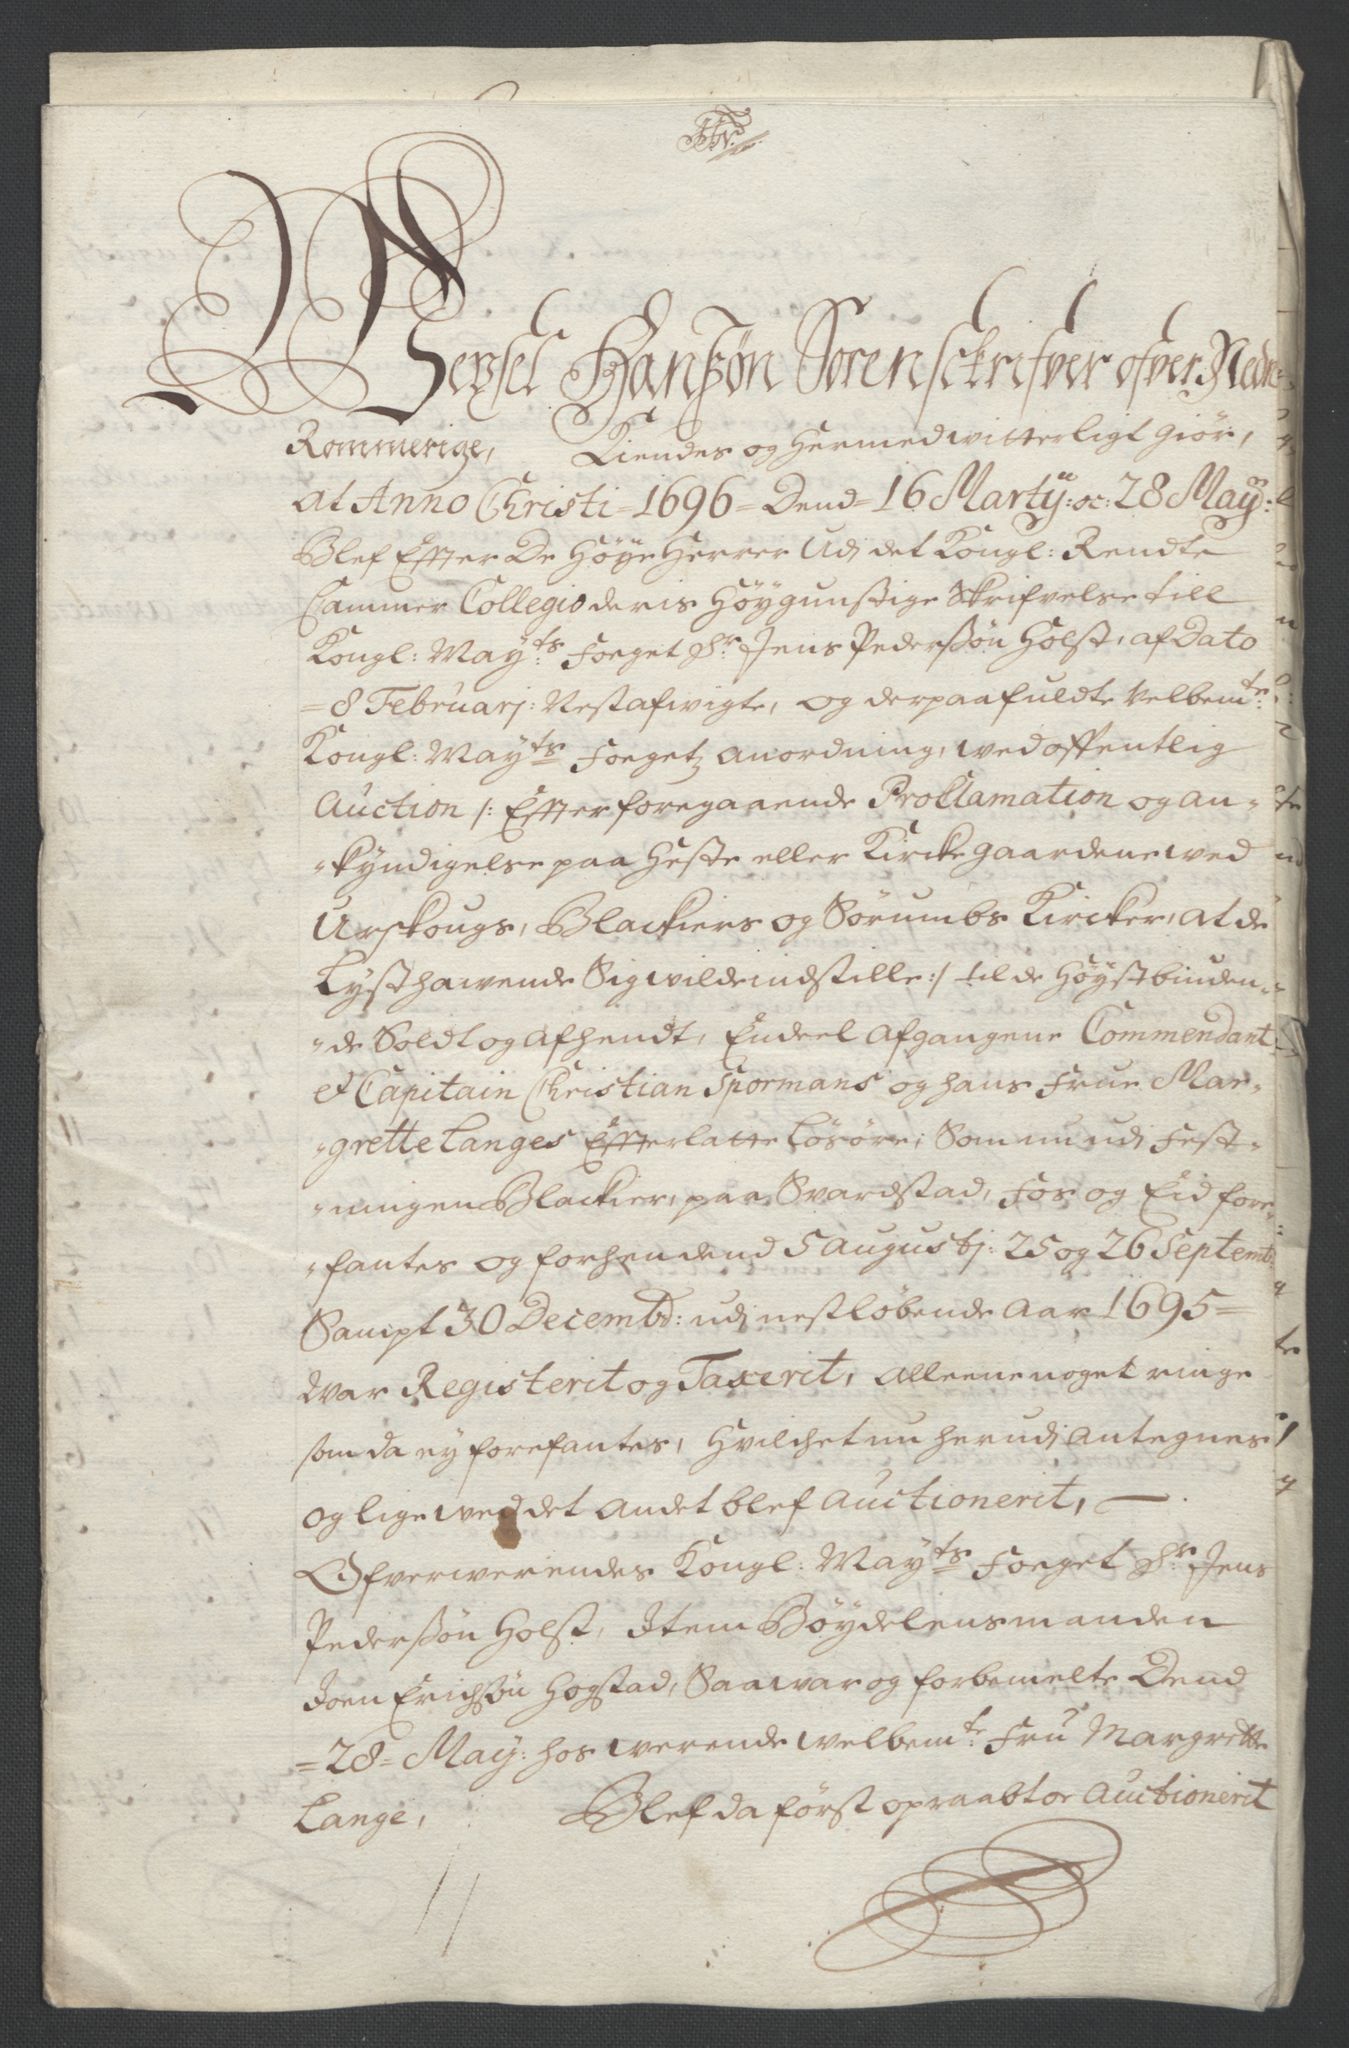 Weÿsel Hanßøn Sorensckrifver ofver Nedre
Rommerige, Kiendes og Hermed witterligt Giør,
at Anno Christi = 1696 = Dend = 16 Martÿ: oc: 28 Maÿ:
Blef Effter De Høye Herrer Udj det Kongl: Rendte
Cammer Collegio deris Høygunstige Skrifvelse till
Kongl: Mayts Foeget Hr Jens Pederßøn Holst, af Dato
= 8 Februarj: Nestafvigte, og derpaafuldte Velbemte
Kongl: Mayts Foegetz Anordning, wed offentlig
Auction /: Effter foregaaende Proklamation og An-
-kyndigelse paa Heste eller Kirckegaardene wed
Urskougs, Blackiers og Sørumbs Kircker, at de
Lysthawende Sig wilde indstille :/ til de Høystbiuden-
-de Soldt og Afhendt, Endeel Afgangene Commendant
et Capitain Christian Spormans og hans Frue Mar-
-grette Langes Effterlatte Løsøre, Som nu udj Fest-
-ningen Blackier, paa Svardstad, Fos og Eid fore-
-fantes og forhen dend 5 Augustj: 25 og 26 Septemb:
Sampt 30 Decembr: udj nestløbende Aar 1695 =
war Registerit og Taxerit, alleene noget ringe
som da ey forefantes, Hvilchet nu herudj Antegnes
og lige wed det Andet blef Auctionerit,
Ofverwerendes Kongl: Mayts Foeget Hr Jens
Pederßøn Holst, Item Bøydelensmanden
Joen Erichsøn Hogstad, Saa war og forbemelte Dend
= 28 = May: hos werende welbemte Fru Margrette
Lange, Blef da først opraabt oc Auctionerit